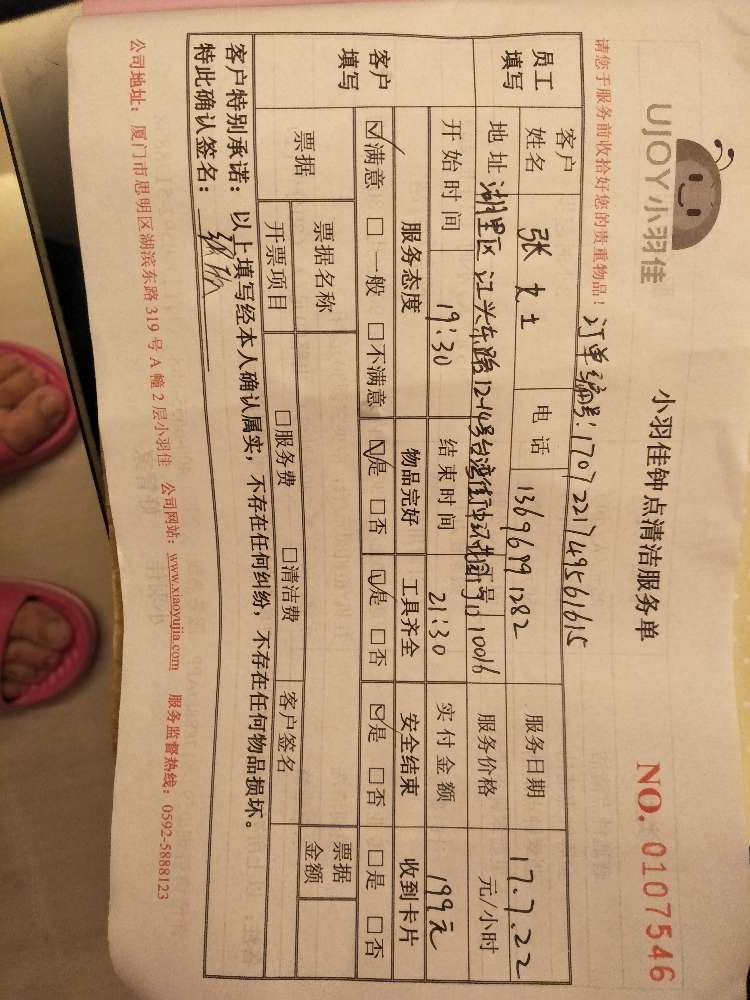 UJOY小羽佳
小羽佳钟点清洁服务单
NO. 0107546
请您于服务前收拾好您的贵重物品！
订单编号：1707221749561615
员工填写
客户姓名 张女士 电话 13696991282 服务日期 17.7.22
地址 湖里区江兴东路12-14号 10016 服务价格 元/小时
开始时间 19:30 结束时间 21:30 实付金额 199元
客户填写
服务态度 物品完好 工具齐全 安全结束 收到卡片
☑满意 □一般 □不满意 ☑是 □否 ☑是 □否 ☑是 □否 □是 □否
票据 票据名称 票据金额
开票项目 □服务费 □清洁费 客户签名
客户特别承诺：以上填写经本人确认属实，不存在任何纠纷，不存在任何物品损坏。
特此确认签名：
公司地址：厦门市思明区湖滨东路 319 号 A 幢 2 层小羽佳 公司网站：www.xiaoyujia.com 服务监督热线：0592-5888123